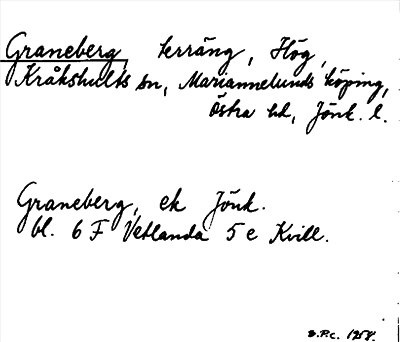 Graneberg, terräng, Hög,
Kråkshults sn, Mariannelunds köping,
Östra hd, Jönk. l.
Graneberg, ek Jönk.
bl. 6 F Vetlanda 5 e Kvill.
S.P.C. 1958.